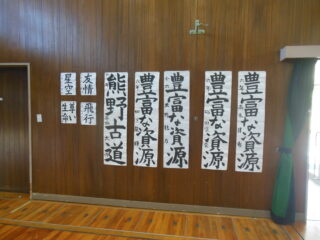 豊富な資源
豊富な資源
豊富な資源
豊富な資源
熊野古道
友情
飛行
星空
尊い生命